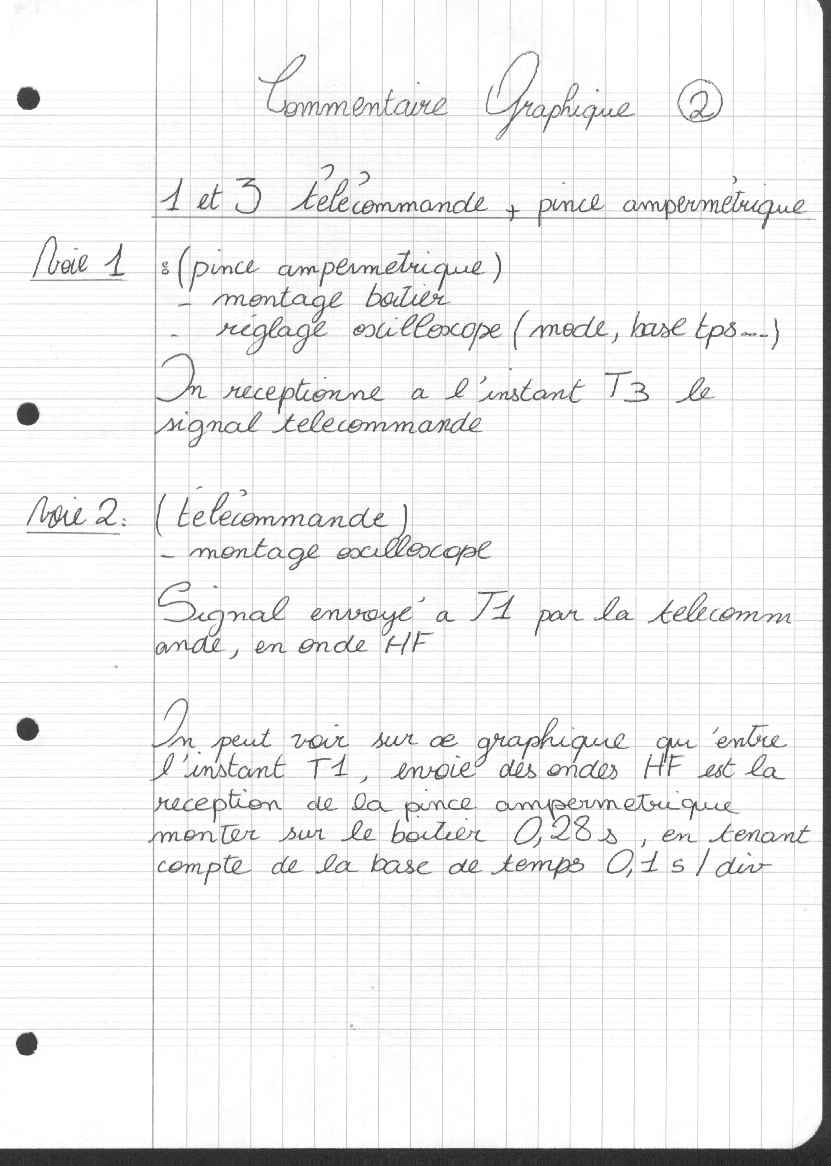 Commentaire Graphique 2
1 et 3 télécommande + pince ampermétrique
Voie 1 : (pince ampermetrique)
- montage boitier
- réglage oscilloscope (mode, base tps....)
On receptionne a l'instant T3 le
signal telecommande
Voie 2 : (télécommande)
- montage oscilloscope
Signal envoyé a T1 par la telecomm
ande, en onde HF
On peut voir sur ce graphique qu'entre
l'instant T1, envoie des ondes HF est la
reception de la pince ampermetrique
monter sur le boitier 0,28 s, en tenant
compte de la base de temps 0,1 s / div